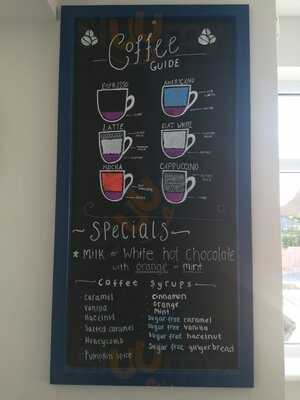 Coffee
GUIDE
ESPRESSO
AMERICANO
LATTE
FLAT WHITE
MOCHA
CAPPUCCINO
SPECIALS
* Milk or White hot chocolate
with orange or mint
Coffee Syrups
caramel
vanilla
Hazelnut
Salted caramel
Honeycomb
Pumpkin spice
cinnamon
orange
mint
Sugar free caramel
Sugar free vanilla
Sugar free hazelnut
Sugar free gingerbread